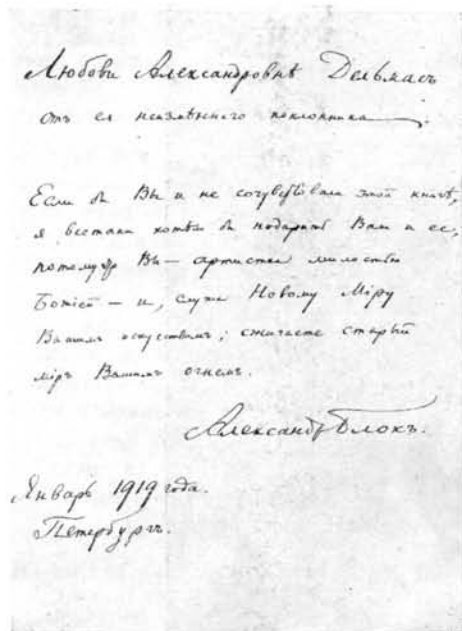 Любови Александровнѣ Дельмасъ
отъ ея неизмѣннаго поклонника.
Если бъ Вы и не сочувствовали этой книгѣ,
я всетаки хотѣлъ бы подарить Вам и ее,
потому что Вы — артистка милостью
Божіей — и, служа Новому Міру
Вашимъ искусствомъ, сжигаете старый
міръ Вашимъ огнемъ.
Александръ Блокъ.
Январь 1919 года.
Петербургъ.